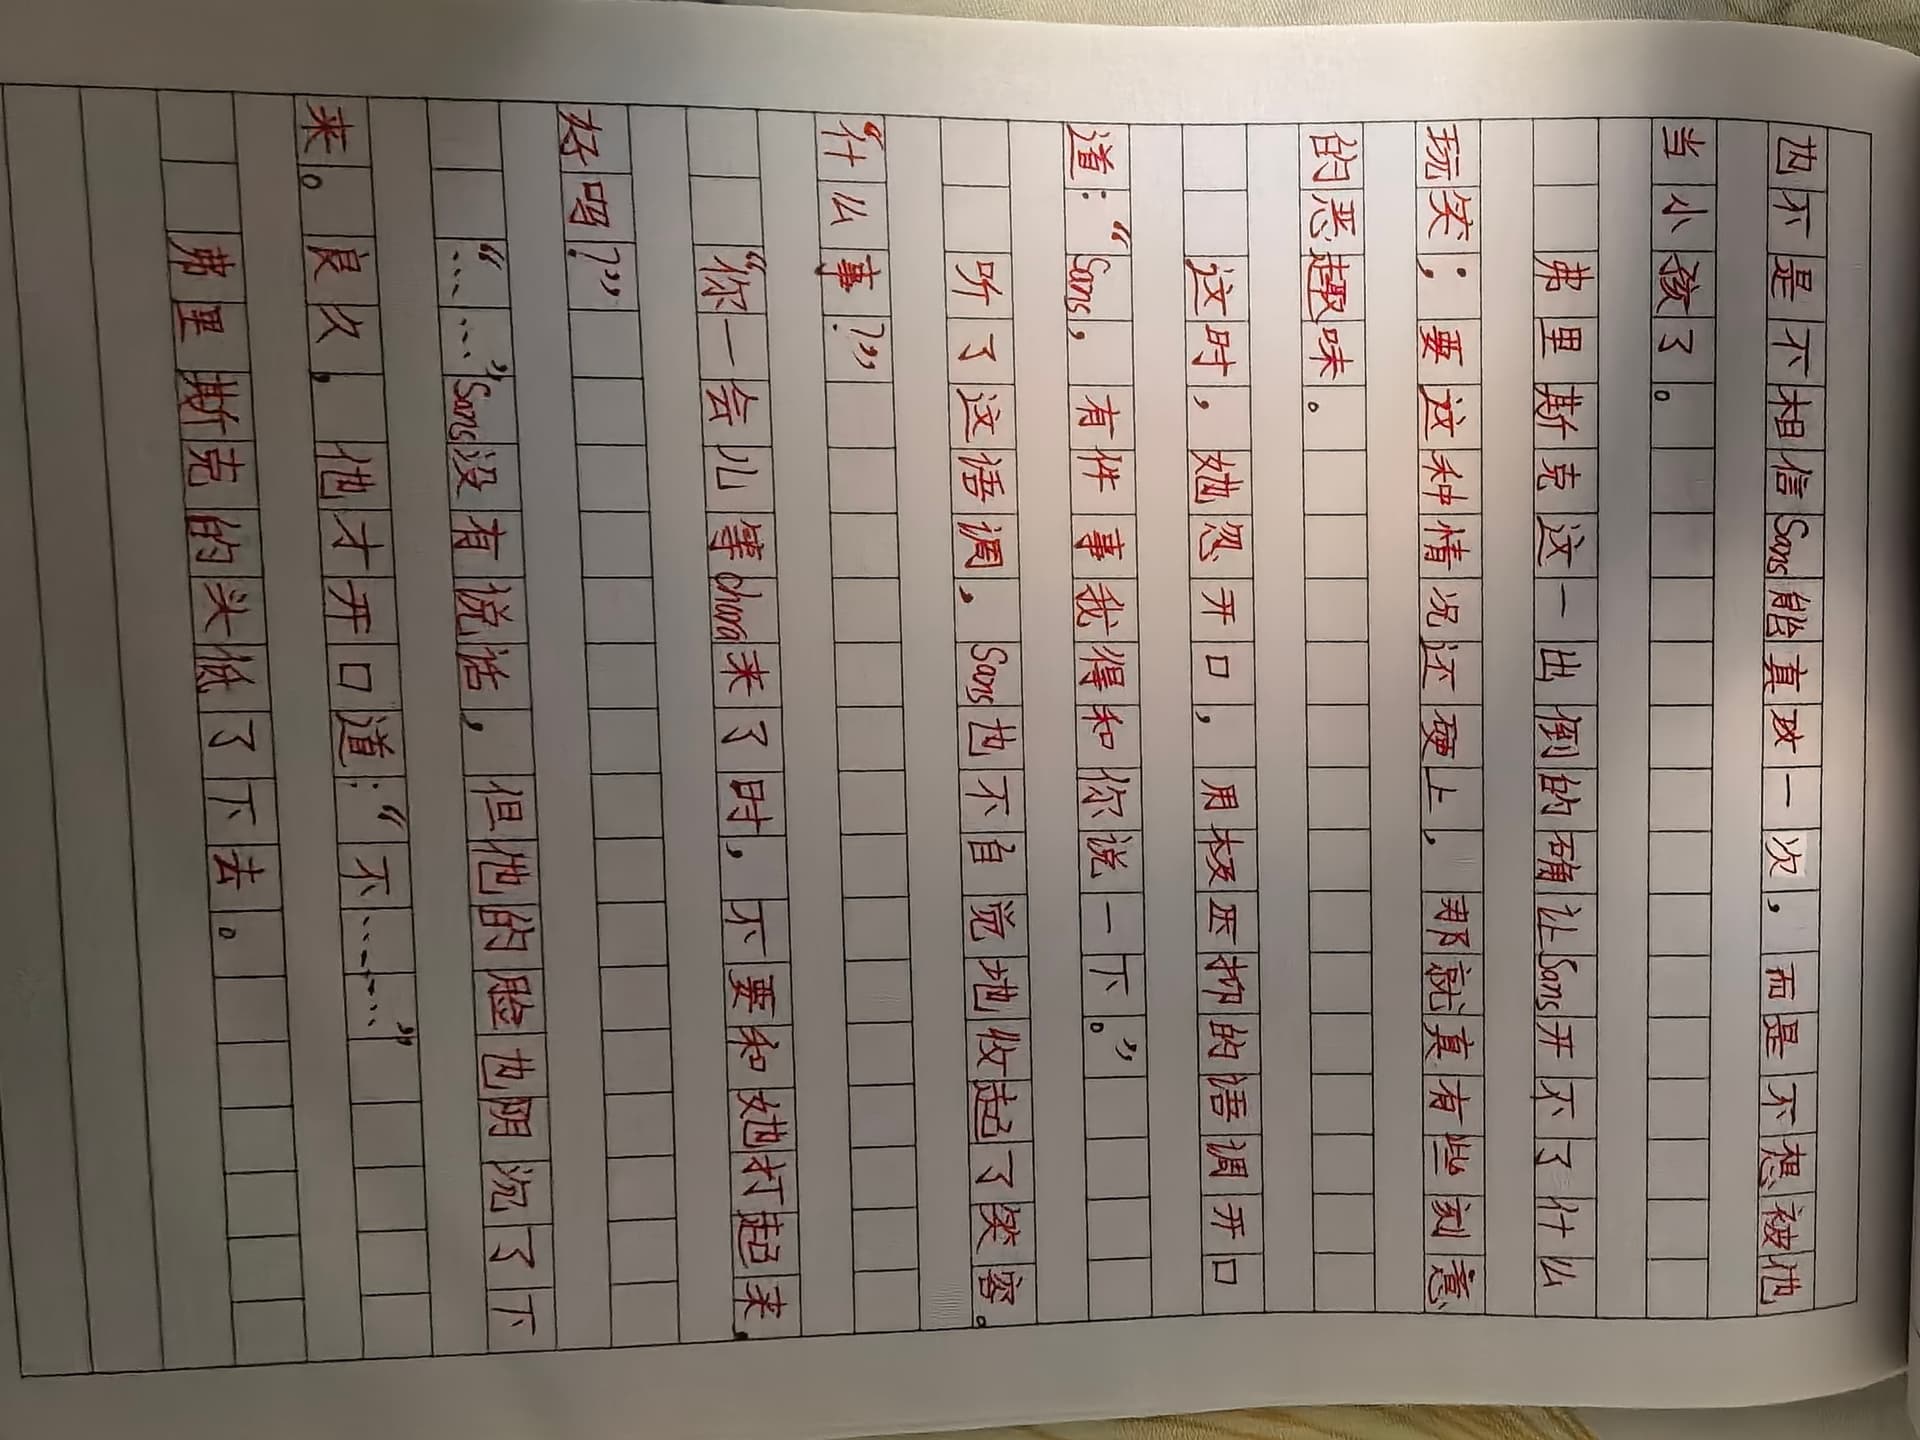 也不是不相信Sans能真改一次，而是不想被他
当小孩了。
弗里斯克这一出倒的确让Sans开不了什么
玩笑；要这种情况还硬上，那就真有些刻意
的恶趣味。
这时，她忽开口，用极压抑的语调开口
道：“Sans，有件事我得和你说一下。”
听了这语调，Sans也不自觉地收起了笑容。
“什么事？”
“你一会儿等chara来了时，不要和她打起来，
好吗？”
“……”Sans没有说话，但他的脸也阴沉了下
来。良久，他才开口道：“不……”
弗里斯克的头低了下去。